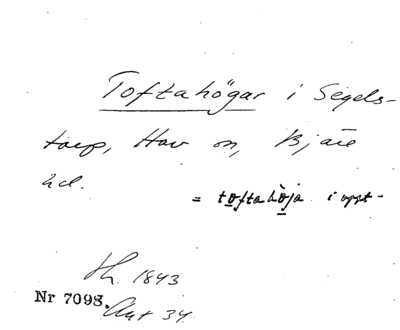 Toftahögar i Segels-
torp, Hov sn, Bjäre
hd.
= toftahöja i uppt-
1843
Nr 7098.
34